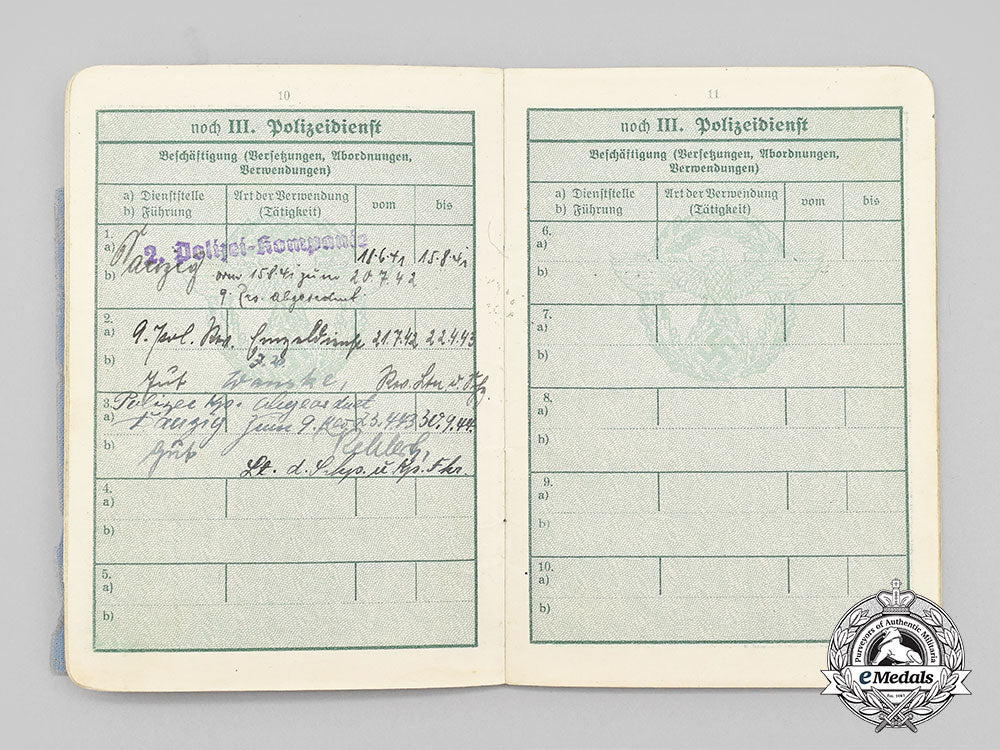 10
noch III. Polizeidienst
Beschäftigung (Versetzungen, Abordnungen,
Verwendungen)
a) Dienststelle
b) Führung
Art der Verwendung
(Tätigkeit)
vom
bis
1.
a)
2. Polizei-Kompanie
18.6.41 15.8.41
b)
Danzig vom 15.8.41 zum 20.7.42
abgeordnet
2.
a)
9. Pol. Rev. Einzeldienst 21.7.42 22.4.43
b)
Gut
3.
a)
Polizei Kp. abgeordnet
Danzig zum 9. Rev. 23.4.43 30.9.44
b)
Gut
Lt. d. Schp. u. Kp. Fhr.
4.
a)
b)
5.
a)
b)
11
noch III. Polizeidienst
Beschäftigung (Versetzungen, Abordnungen,
Verwendungen)
a) Dienststelle
b) Führung
Art der Verwendung
(Tätigkeit)
vom
bis
6.
a)
b)
7.
a)
b)
8.
a)
b)
9.
a)
b)
10.
a)
b)
Purveyors of Authentic Militaria
eMedals